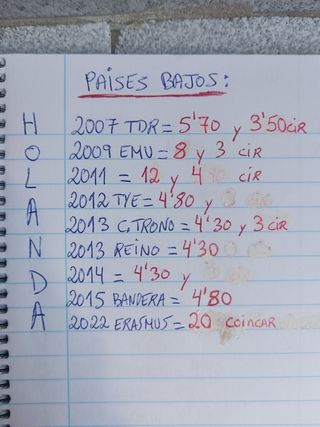 PAISES BAJOS:
H 2007 TDR = 5'70 y 3'50 CIR
O 2009 EMU = 8 y 3 CIR
L 2011 = 12 y 4 CIR
A 2012 TYE = 4'80 y
N 2013 C,TRONO = 4'30 y 3 CIR
2013 REINO = 4'30
D 2014 = 4'30 y
2015 BANDERA = 4'80
A 2022 ERASMUS = 20 COINCAR